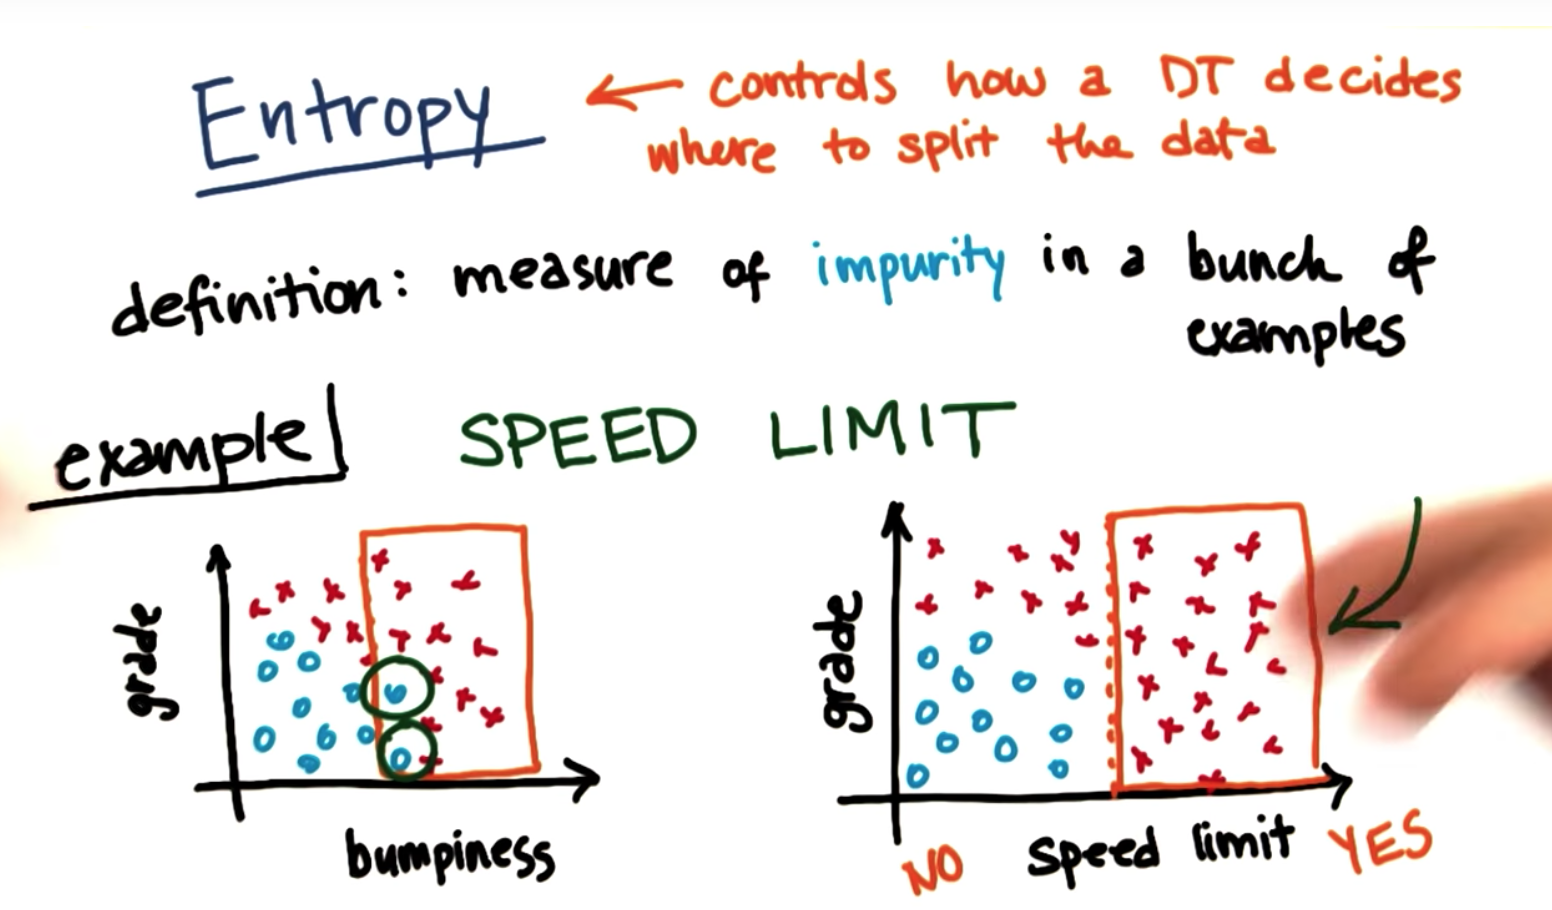 Entropy
controls how a DT decides
where to split the data
definition: measure of impurity in a bunch of
examples
example
SPEED LIMIT
grade
bumpiness
grade
NO speed limit YES